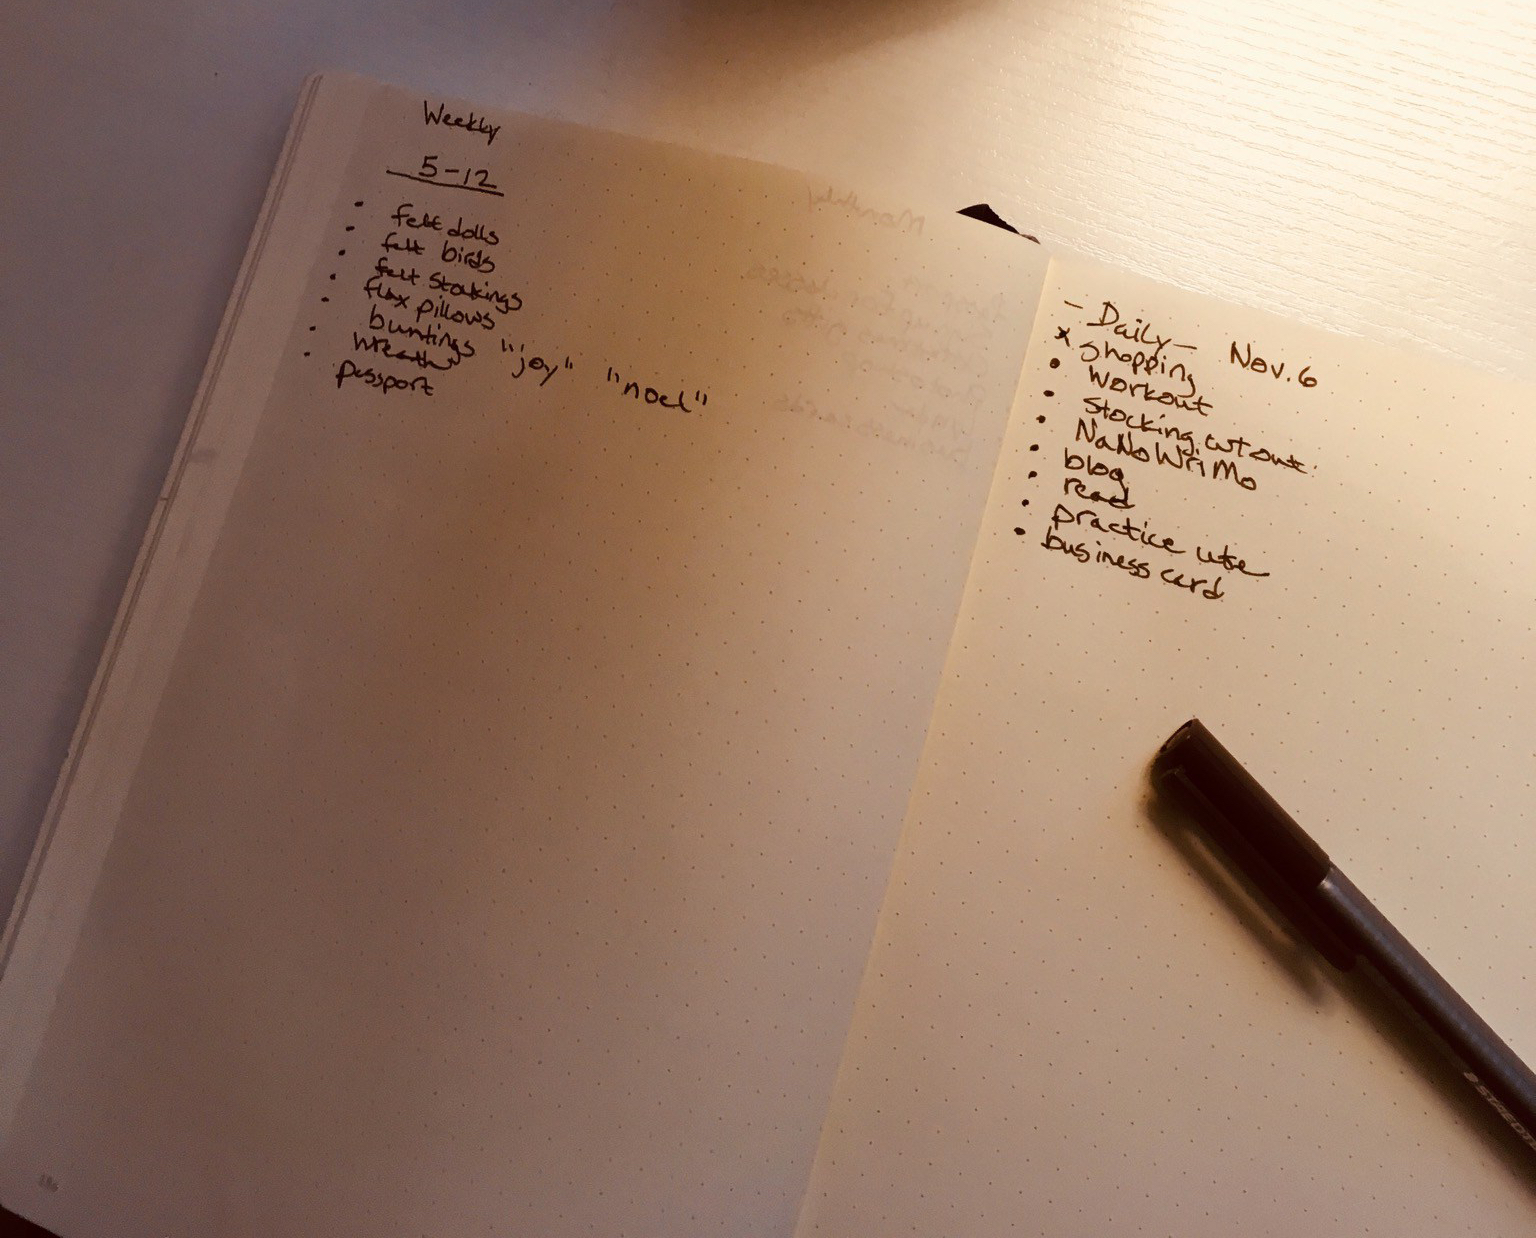 Weekly
5-12
• felt dolls
• felt birds
• felt stockings
• flax pillows
• buntings "joy" "noel"
• wreath
• passport
Monthly
- Daily - Nov. 6
x shopping
• workout
• stocking cut out
• NaNoWriMo
• blog
• read
• practice
• business card
STAEDT